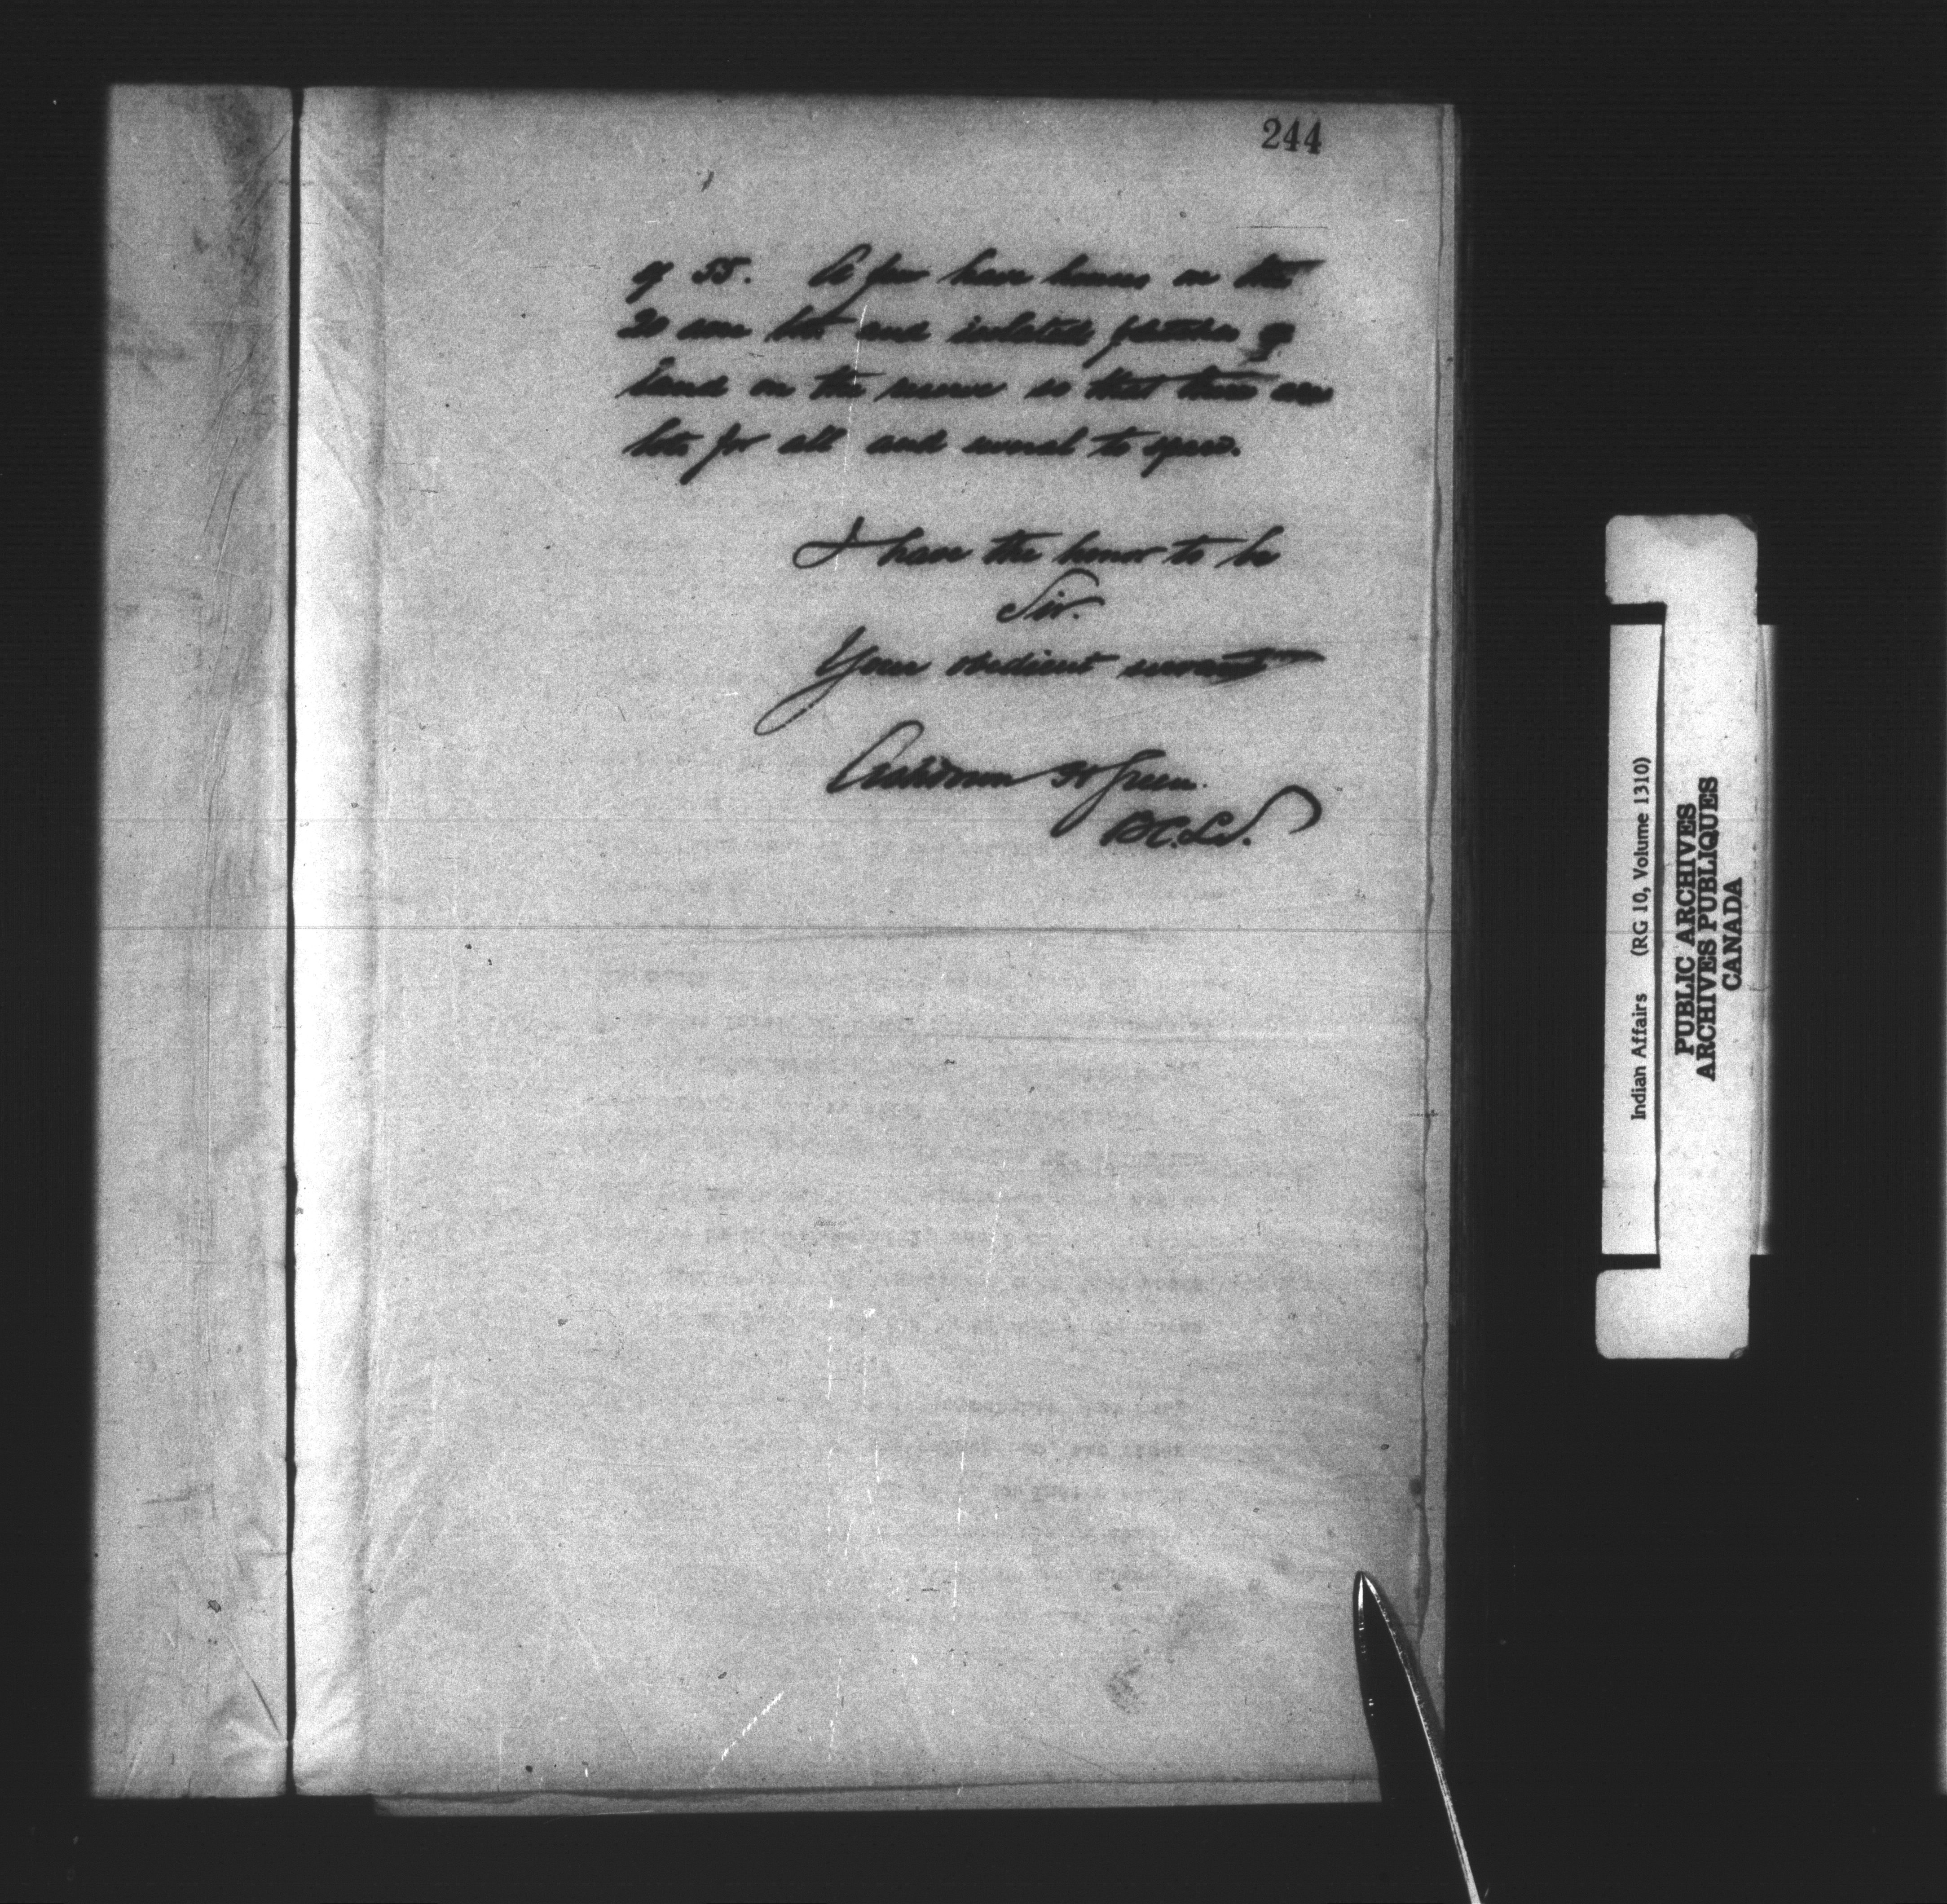 244
of 55. A few have houses on the
20 acre lots and isolated patches of
land on the reserve so that there are
lots for all and several to spare.
I have the honor to be
Sir.
Your obedient servant
Ashdown H Green.
B.C.L.S.
Indian Affairs (RG 10, Volume 1310)
PUBLIC ARCHIVES
ARCHIVES PUBLIQUES
CANADA